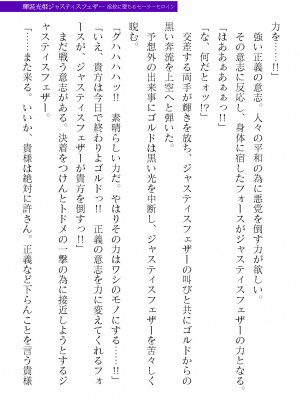 輝装光姫ジャスティスフェザー
力を……!!」
　強い正義の意志。人々の平和の為に悪党を倒す力が欲しい。
　その意志に反応し、身体に宿したフォースがジャスティスフェザーの力となる。
「はああああぁぁっ!!」
「な、何だとォッ!?」
　交差する両手が輝きを放ち、ジャスティスフェザーの叫びと共にゴルドからの
黒い奔流を上空へと弾いた。
　予想外の出来事にゴルドは黒い光を中断し、ジャスティスフェザーを苦々しく
睨む。
「グハハハハッ!!　素晴らしい力だ。やはりその力はワシのモノにする……!!」
「いえ、貴方は今日で終わりよゴルドっ!!　正義の意志を力に変えてくれるフォ
ースが、ジャスティスフェザーが貴方を倒すっ!!」
　まだ戦う意志がある。決着をつけんとトドメの一撃の為に接近しようとするジ
ャスティスフェザー。
「……また来る。いいか、貴様は絶対に許さん。正義など下らんことを言う貴様